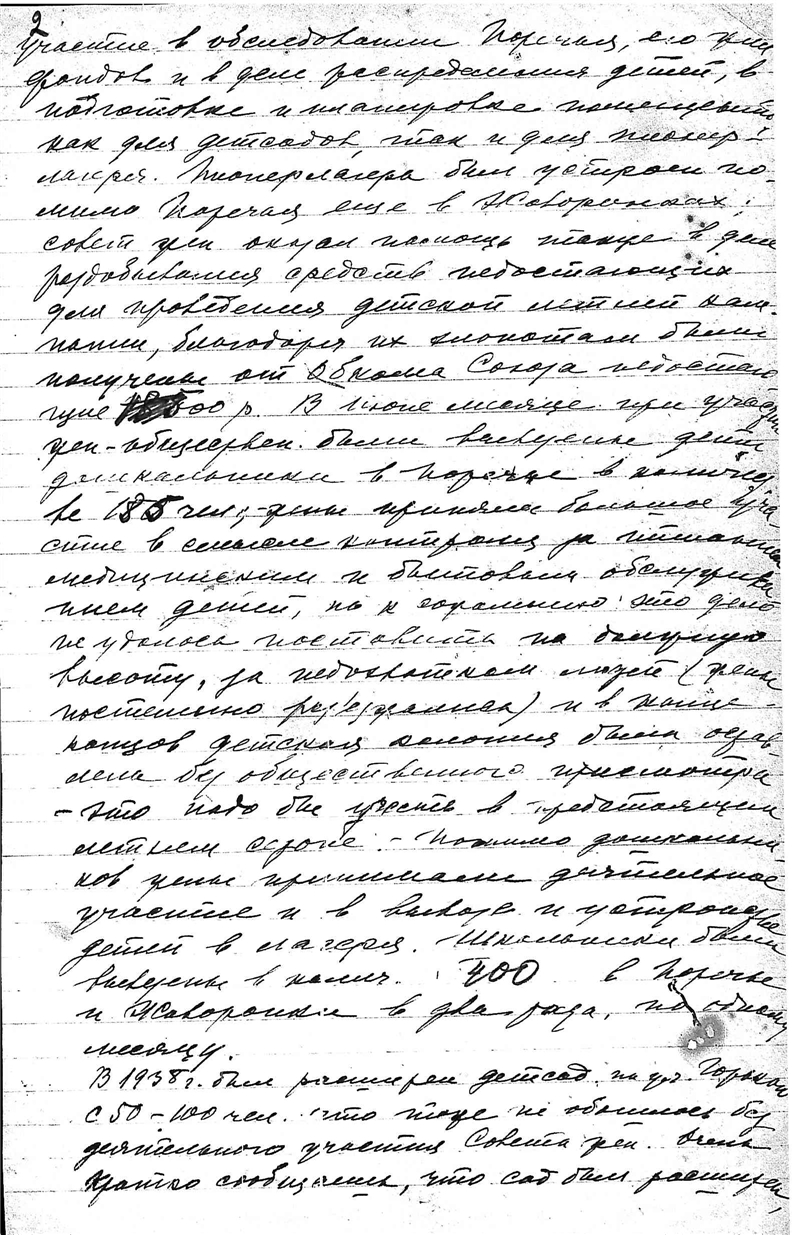 2
участие в обследовании Поречья, его жил
фондов и в деле распределения детей, в
подготовке и планировке помещений
как для детсадов, так и для пионер-
лагеря. Пионерлагерь был устроен по-
мимо Поречья еще в Жаворонках;
совет жен оказал помощь также в деле
раздобывания средств недостающих
для проведения детской летней кам-
пании, благодаря их хлопотам были
получены от Обкома Союза недостаю
щие р. В июне месяце при участи
жен-обществен. были вывезены дети
дошкольники в Поречье в количес
ве 185 чел; жены приняли большое уча
стие в смысле контроля за питанием
медицинским и бытовым обслужива
нием детей, но к сожалению это дело
не удалось поставить на должную
высоту, за недохватком людей (жены
постепенно разъезжались) и в конце
концов детская колония была остав
лена без общественного присмотра
- это надо бы учесть в предстоящем
летнем сезоне. - Помимо дошкольни
ков жены принимали деятельное
участие и в вывозе и устройстве
детей в лагеря. Школьники были
вывезены в колич. 400 в Поречье
и Жаворонки в два раза, по одному
месяцу.
В 1938 г. был расширен детсад на ул. Горького
с 50-100 чел. что тоже не обошлось без
деятельного участия Совета жен. Очень
кратко сообщаешь, что сад был расширен,